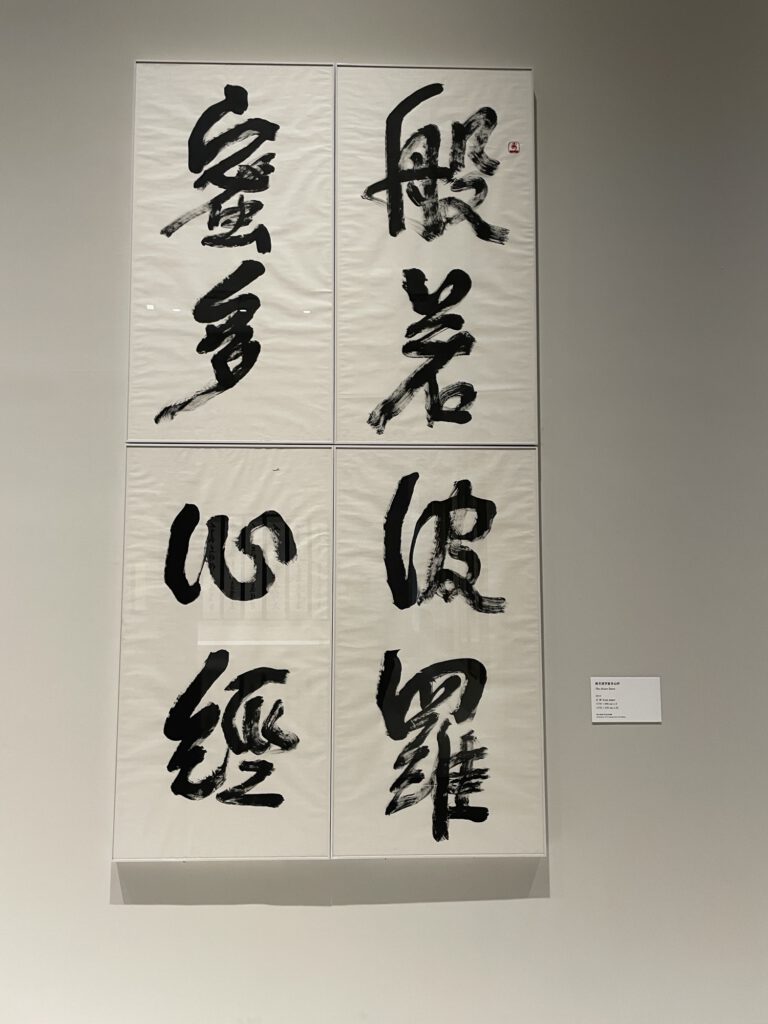 般若波羅
蜜多心經
般若波羅蜜多心經
The Heart Sutra